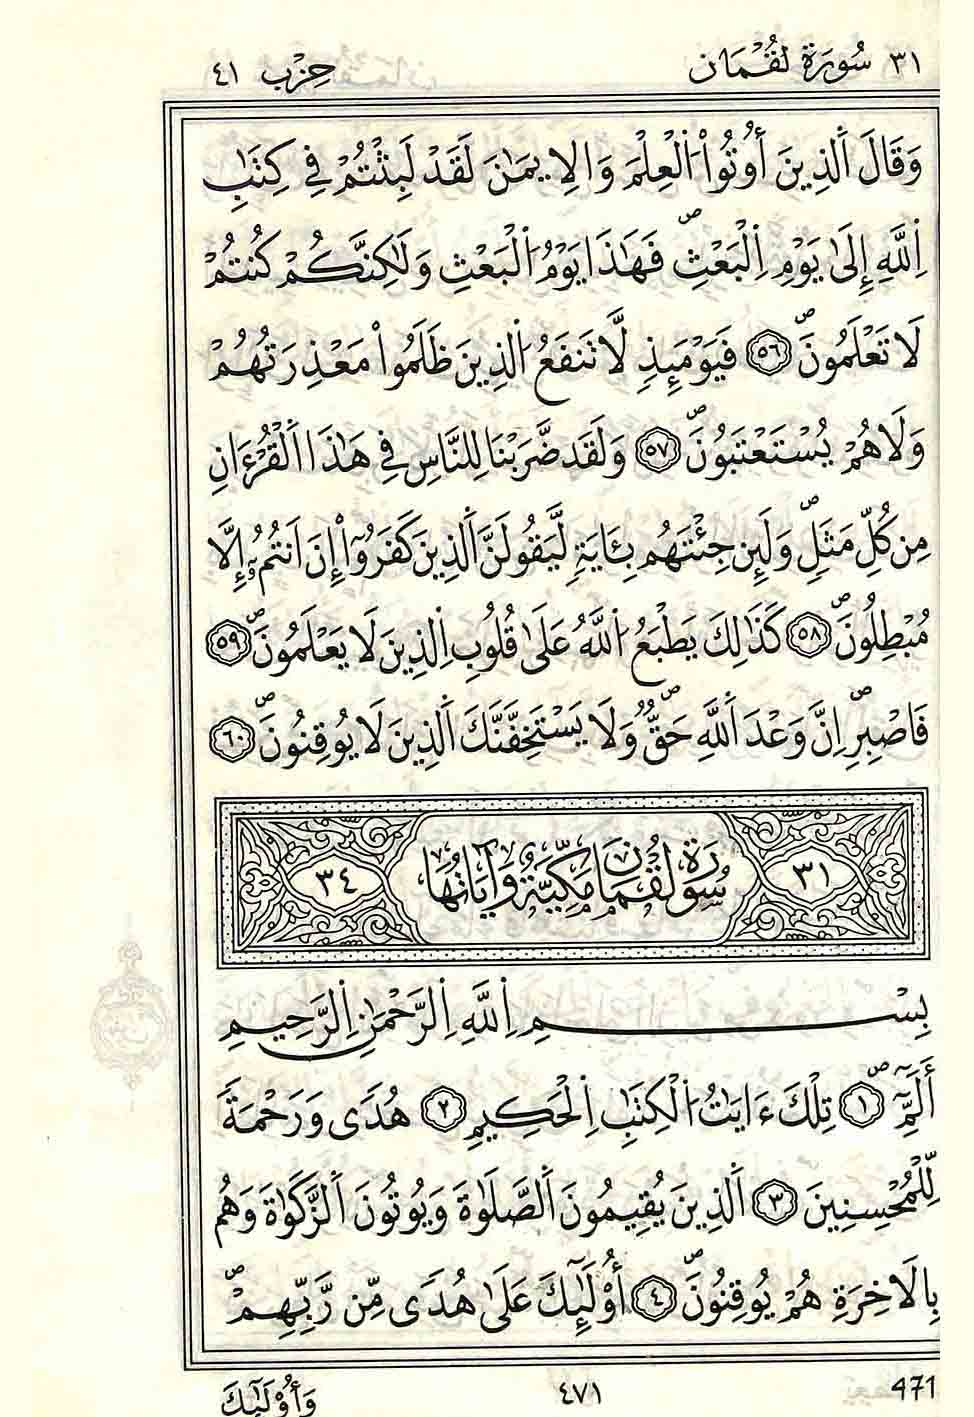 ٣١ سُورَة لُقْمَان حِزْب ٤١
وَقَالَ اَ۬لذِينَ أُوتُواْ اُ۬لْعِلْمَ وَالِايمَٰنَ لَقَدْ لَبِثْتُمْ فِے كِتَٰبِ
اِ۬للَّهِ إِلَىٰ يَوْمِ اِ۬لْبَعْثِۖ فَهَٰذَا يَوْمُ اُ۬لْبَعْثِ وَلَٰكِنَّكُمْ كُنتُمْ
لَا تَعْلَمُونَۖ ٥٦ فَيَوْمَئِذٖ لَّا تَنفَعُ اُ۬لذِينَ ظَلَمُواْ مَعْذِرَتُهُمْ
وَلَا هُمْ يُسْتَعْتَبُونَۖ ٥٧ وَلَقَد ضَّرَبْنَا لِلنَّاسِ فِے هَٰذَا اَ۬لْقُرْءَانِ
مِن كُلِّ مَثَلٖۖ وَلَئِن جِئْتَهُم بِـَٔايَةٖ لَّيَقُولَنَّ اَ۬لذِينَ كَفَرُوٓاْ إِنَ اَنتُمُۥٓ إِلَّا
مُبْطِلُونَۖ ٥٨ كَذَٰلِكَ يَطْبَعُ اُ۬للَّهُ عَلَىٰ قُلُوبِ اِ۬لذِينَ لَا يَعْلَمُونَۖ ٥٩
فَاصْبِرِۖ اِنَّ وَعْدَ اَ۬للَّهِ حَقّٞۖ وَلَا يَسْتَخِفَّنَّكَ اَ۬لذِينَ لَا يُوقِنُونَۖ ٦٠
٣١ سُورَة لُقْمَان مَكِّيَّة وَآيَاتُهَا ٣٤
بِسْمِ اِ۬للَّهِ اِ۬لرَّحْمَٰنِ اِ۬لرَّحِيمِ
أَلَٓمِّٓۖ ١ تِلْكَ ءَايَٰتُ اُ۬لْكِتَٰبِ اِ۬لْحَكِيمِ ٢ هُدىٗ وَرَحْمَةٗ
لِّلْمُحْسِنِينَ ٣ اَ۬لذِينَ يُقِيمُونَ اَ۬لصَّلَوٰةَ وَيُوتُونَ اَ۬لزَّكَوٰةَ وَهُم
بِالَاخِرَةِ هُمْ يُوقِنُونَۖ ٤ أُوْلَٰٓئِكَ عَلَىٰ هُدىٗ مِّن رَّبِّهِمْۖ
وَأُوْلَٰٓئِكَ ٤٧١ 471